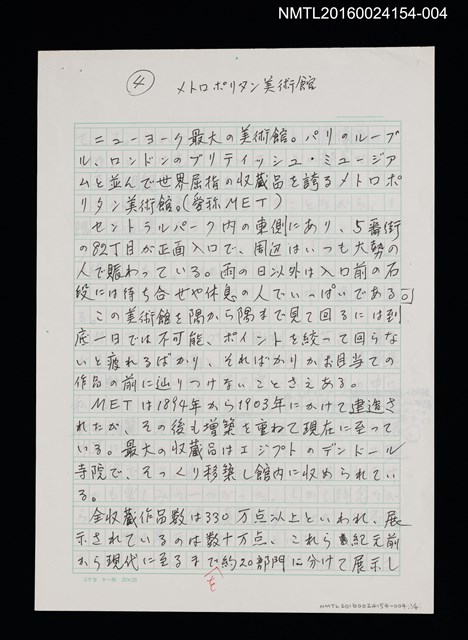 NMTL20160024154-004
④ メトロポリタン美術館
ニューヨーク最大の美術館。パリのルーブ
ル、ロンドンのブリティッシュ・ミュージア
ムと並んで世界屈指の収蔵品を誇るメトロポ
リタン美術館。(愛称MET)
セントラルパーク内の東側にあり、5番街
の82丁目が正面入口で、周辺はいつも大勢の
人で賑わっている。雨の日以外は入口前の石
段には待ち合せや休息の人でいっぱいである
この美術館を隅から隅まで見て回るには到
底一日では不可能、ポイントを絞って回らな
いと疲れるばかり、そればかりかお目当ての
作品の前に辿りつけないことさえある。
METは1894年から1903年にかけて建造さ
れたが、その後も増築を重ねて現在に至って
いる。最大の収蔵品はエジプトのデンドール
寺院で、そっくり移築し館内に収められてい
る。
全収蔵作品数は330万点以上といわれ、展
示されているのは数十万点、これら紀元前
から現代に至るまで約20部門に分けて展示し
を
NMTL20160024154-004